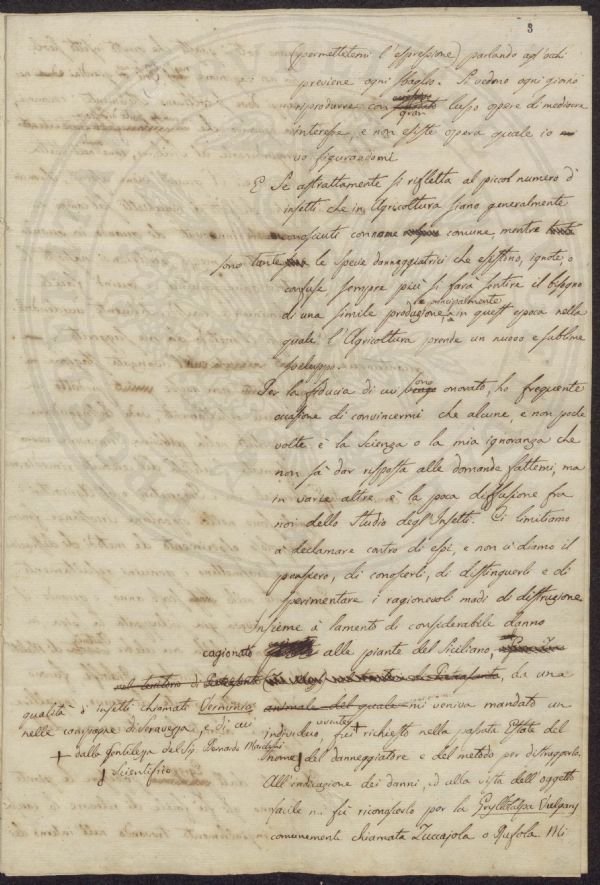 3
(permettetemi l'espressione) parlando agl'occhi
previene ogni sbaglio. Si vedono ogni giorno
riprodurre con gran lusso opere di mediocre
interesse, e non esiste opera quale io
vo figurandomi.
E Se astrattamente si rifletta al piccol numero d'
insetti che in Agricoltura siano generalmente
conosciuti con nome comune, mentre
sono tante le specie danneggiatrici che esistino, ignote, o
confuse sempre più si farà sentire il bisogno
di una simile produzione, e principalmente in quest'epoca nella
quale l'Agricoltura prende un nuovo e sublime
sviluppo.
Per la fiducia di cui sono onorato, ho frequente
occasione di convincermi che alcune, e non poche
volte è la Scienza o la mia ignoranza che
non sà dar risposta alle domande fattemi, ma
in varie altre, è la poca diffusione fra
noi dello studio degl'Insetti. Ci limitiamo
a declamare contro di essi, e non ci diamo il
pensiero, di conoscerli, di distinguerli e di
sperimentare i ragionevoli modi di distruzione
Insieme à lamenti di considerabile danno
cagionato alle piante del Siciliano, da una
qualità d'insetti chiamati Verminara
nelle campagne di Seravezza e di cui
mi veniva mandato un
individuo, fui + richiesto nella passata Estate del
+ dalla Gentilezza del Sig.
nome del danneggiatore e del metodo per distruggerlo.
scientifico
All'indicazione dei danni, ed alla vista dell'oggetto
facile mi fù riconoscerlo per la Gryllotalpa Vulgaris
comunemente chiamata Zuccajola o Rufola. Mi